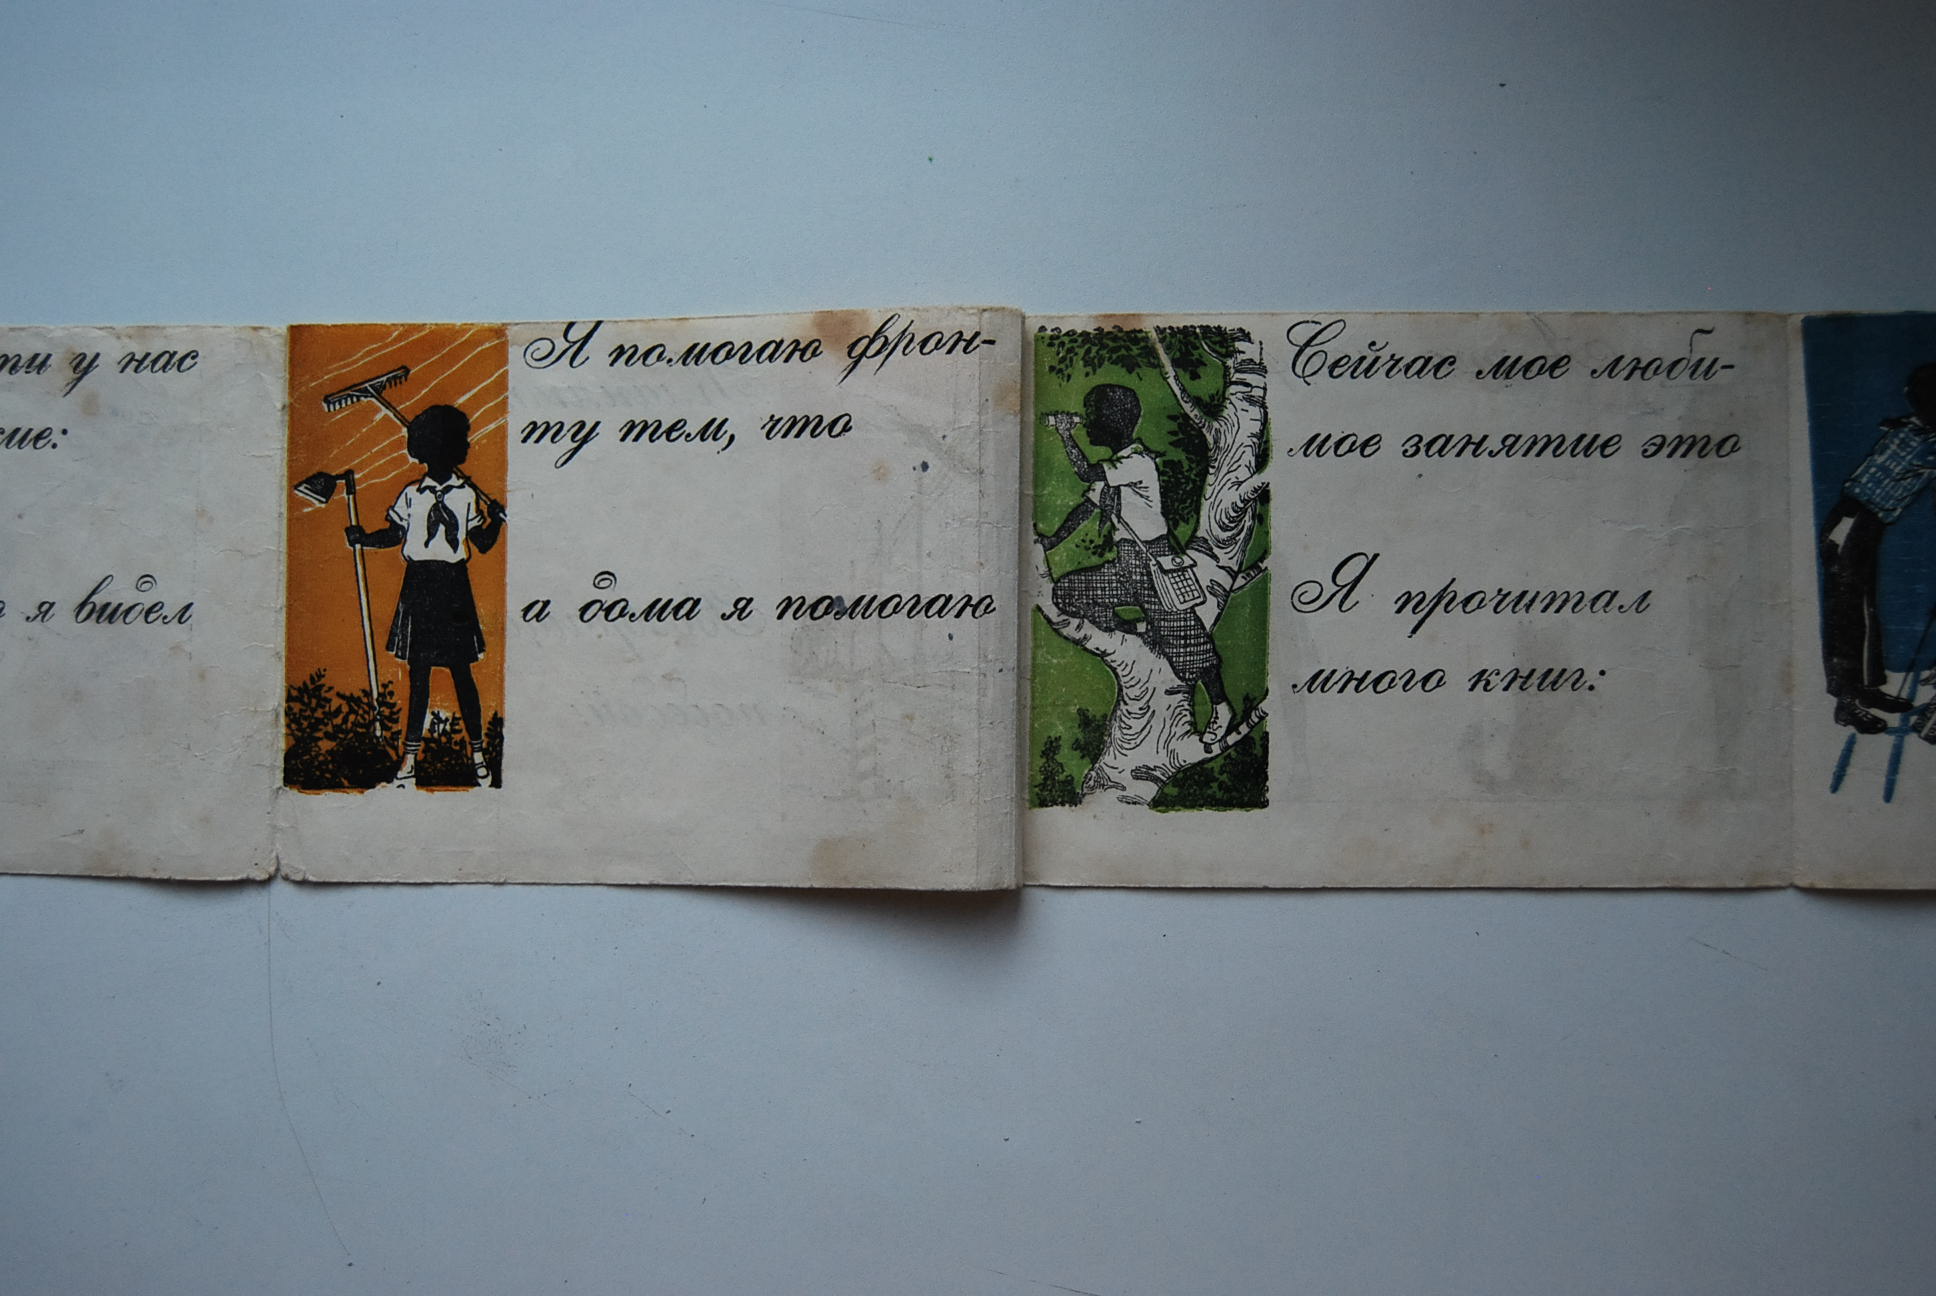 у нас
я видел
Я помогаю фрон-
ту тем, что
а дома я помогаю
Сейчас мое люби-
мое занятие это
Я прочитал
много книг: